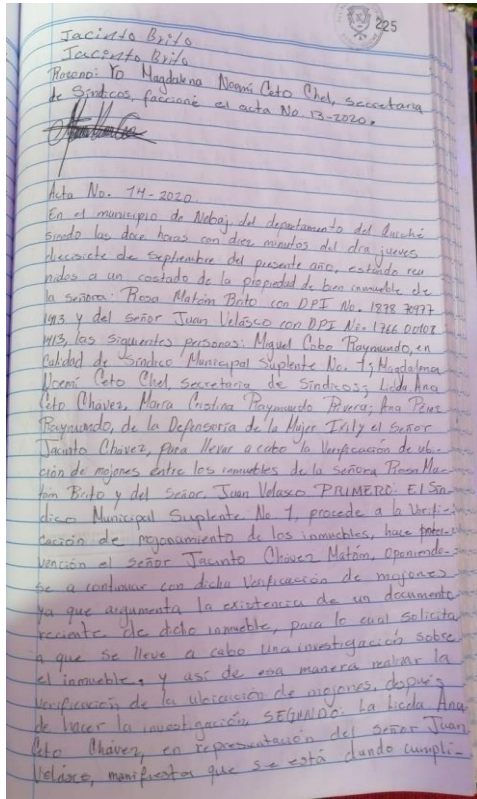 225
Jacinto Brito
Jacinto Brito
Rosano: Yo Magdalena Noemí Ceto Chel, secretaria
de Síndicos, faccioné el acta No. 13-2020.
Acta No. 14-2020.
En el municipio de Nebaj del departamento del Quiché
siendo las doce horas con diez minutos del día jueves
diecisiete de Septiembre del presente año, estando reu
nidos a un costado de la propiedad de bien inmueble de
la señora: Rosa Matóm Brito con DPI No. 1878 70977
1413 y del señor Juan Velásco con DPI No. 1766 00102
1413, las siguientes personas: Miguel Cobo Raymundo, en
Calidad de Síndico Municipal Suplente No. 1; Magdalena
Noemí Ceto Chel, secretaria de Síndicos; Licda Ana
Ceto Chávez, María Cristina Raymundo Rivera; Ana Pérez
Raymundo, de la Defensoría de la Mujer Ixil y el señor
Jacinto Chavez, Para llevar a cabo la Verificación de ubi-
ción de mojones entre los inmuebles de la señora Rosa Ma-
tóm Brito y del Señor Juan Velasco PRIMERO: El Sín-
dico Municipal Suplente No. 1, procede a la Verifi-
cación de mojonamiento de los inmuebles, hace inter-
vención el señor Jacinto Chávez Matóm, oponiendo-
se a continuar con dicha Verificación de mojones
ya que argumenta la existencia de un documento
reciente de dicho inmueble, para lo cual solicita
a que se lleve a cabo una investigación sobre
el inmueble, y así de esa manera realizar la
verificación de la ubicación de mojones, después
de hacer la investigación, SEGUNDO: La licda Ana
Ceto Chávez, en representación del señor Juan
Velásco, manifiesta que se está dando cumpli-